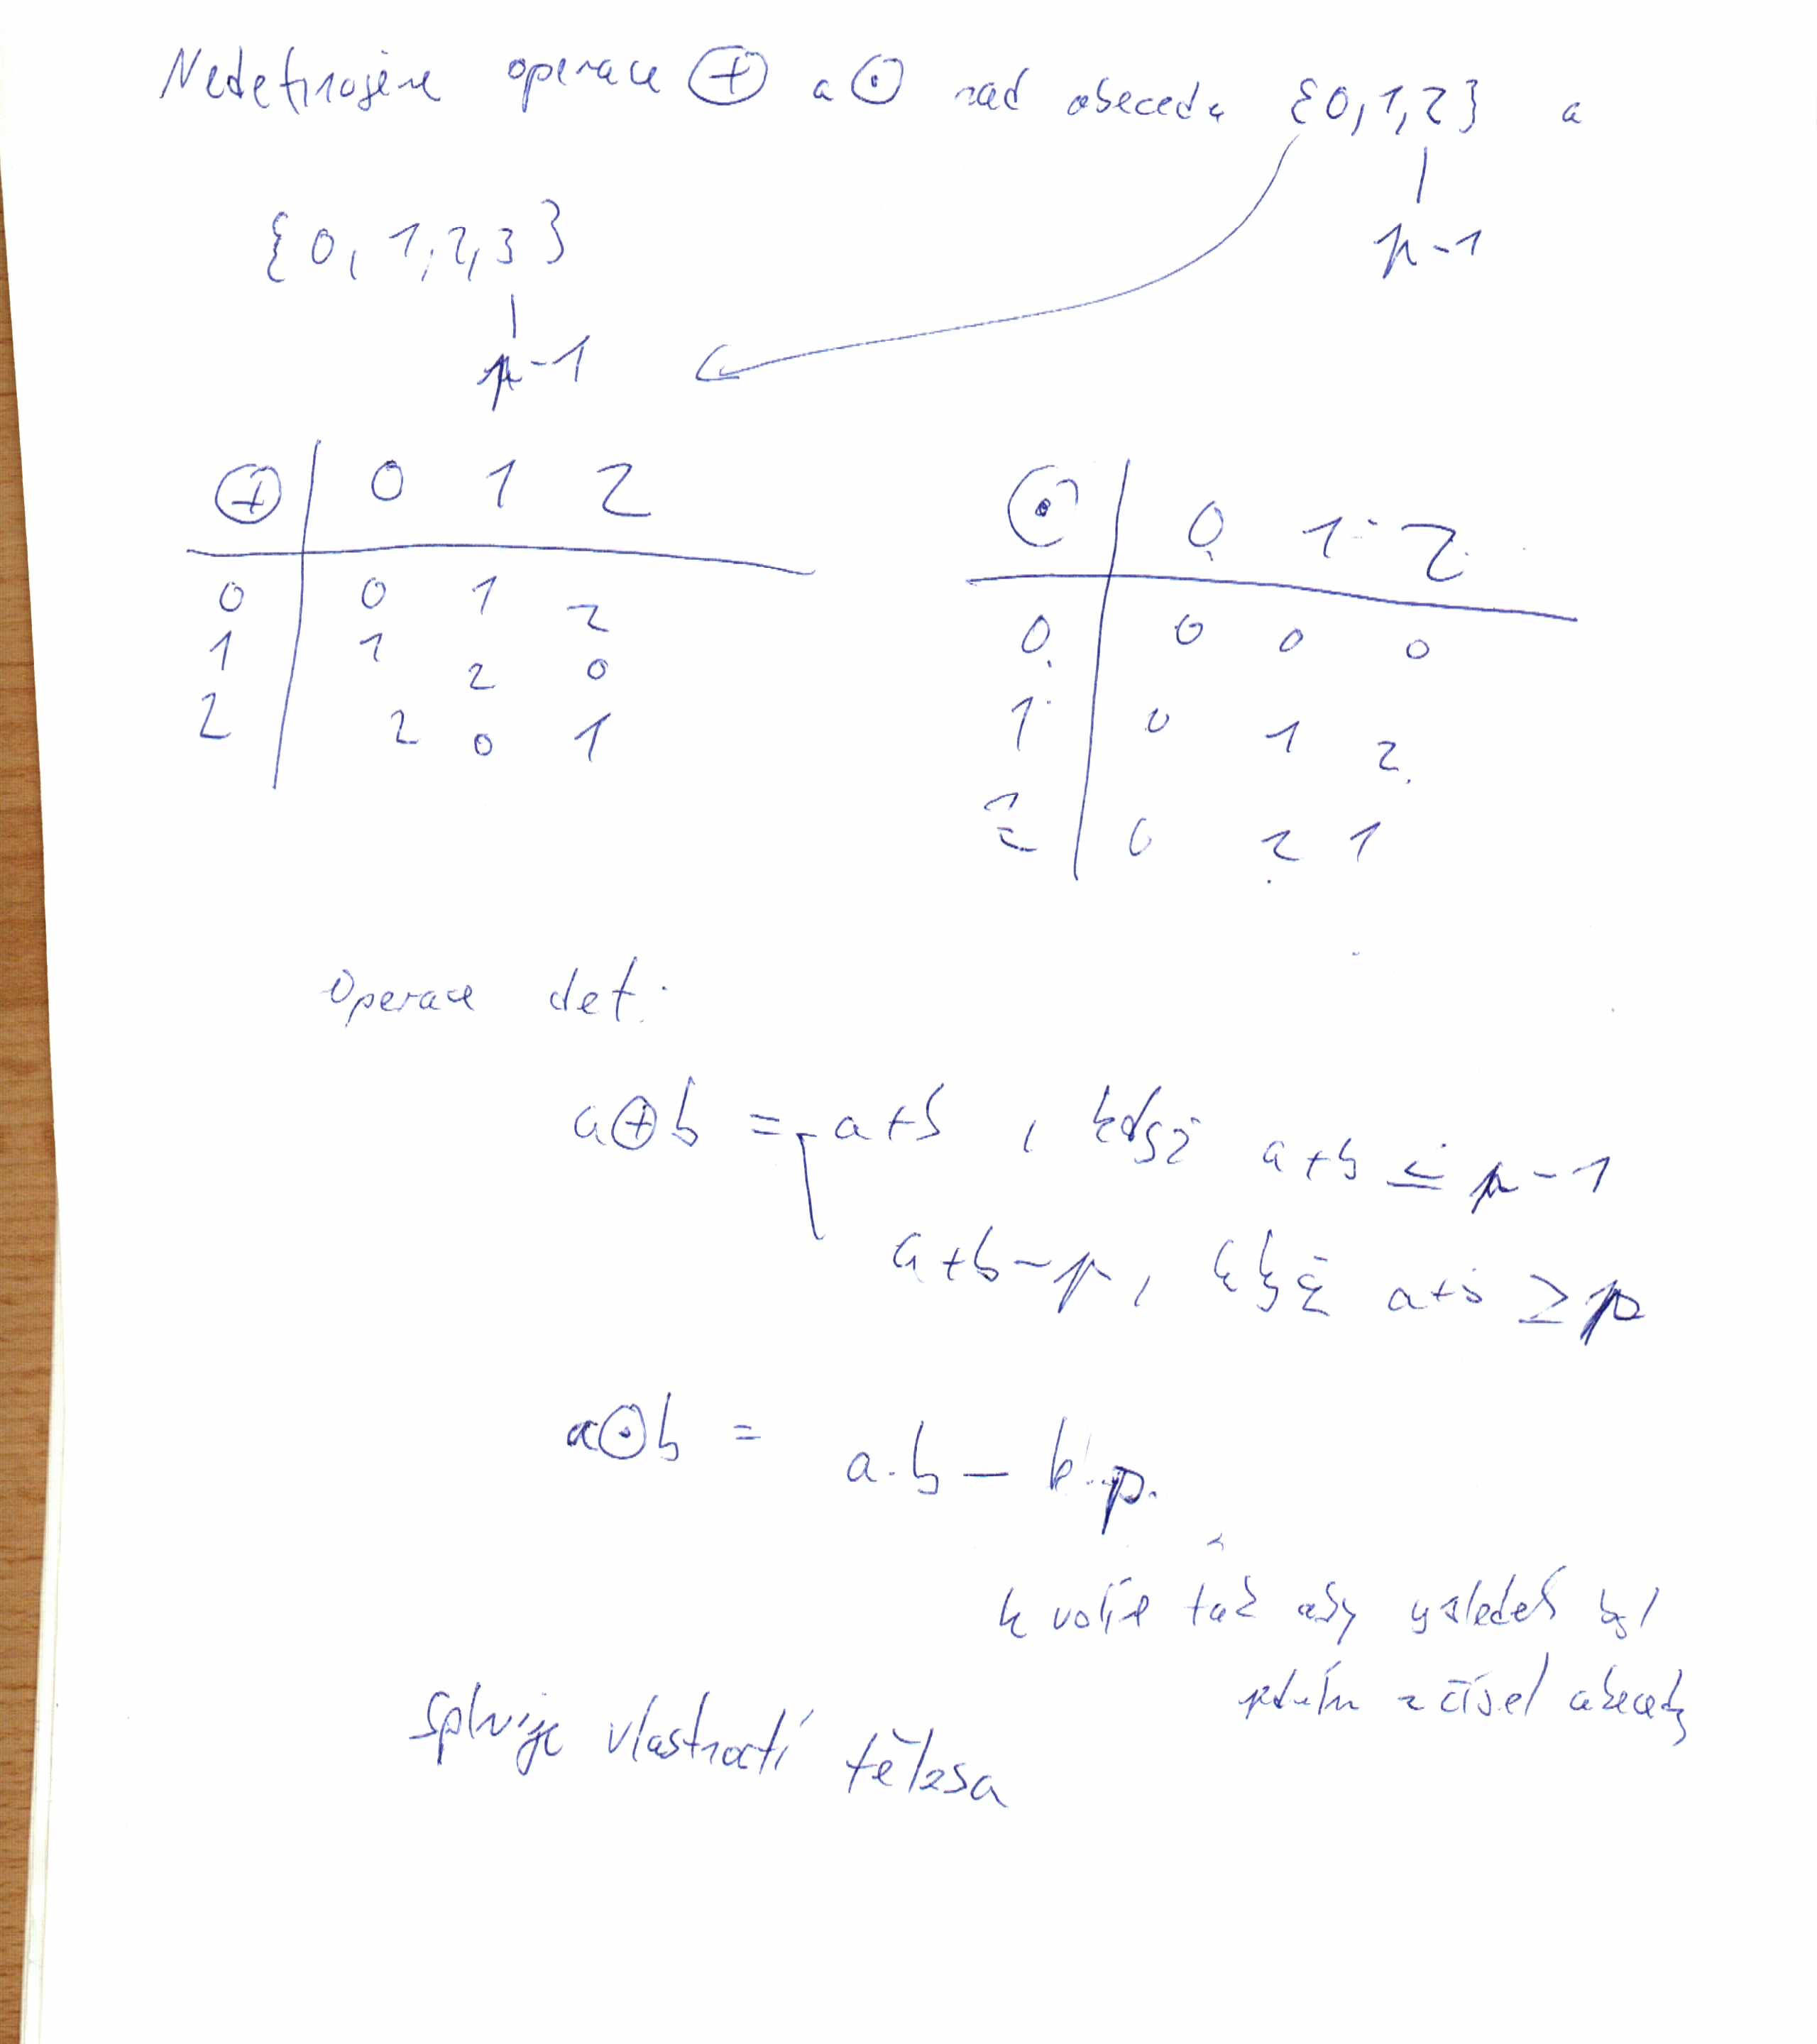 Nedefinujeme operace ⊕ a ⊙ nad abeceda {0,1,2} a
p-1
{0, 1, 2, 3}
p-1
⊕ 0 1 2
0 0 1 2
1 1 2 0
2 2 0 1
⊙ 0 1 2
0 0 0 0
1 0 1 2
2 0 2 1
Operace def:
a⊕b = a+b , když a+b ≤ p-1
a+b-p, když a+b ≥ p
a⊙b = a.b - k.p.
k volíme tak aby výsledek byl
z čísel abecedy
splňuje vlastnosti tělesa